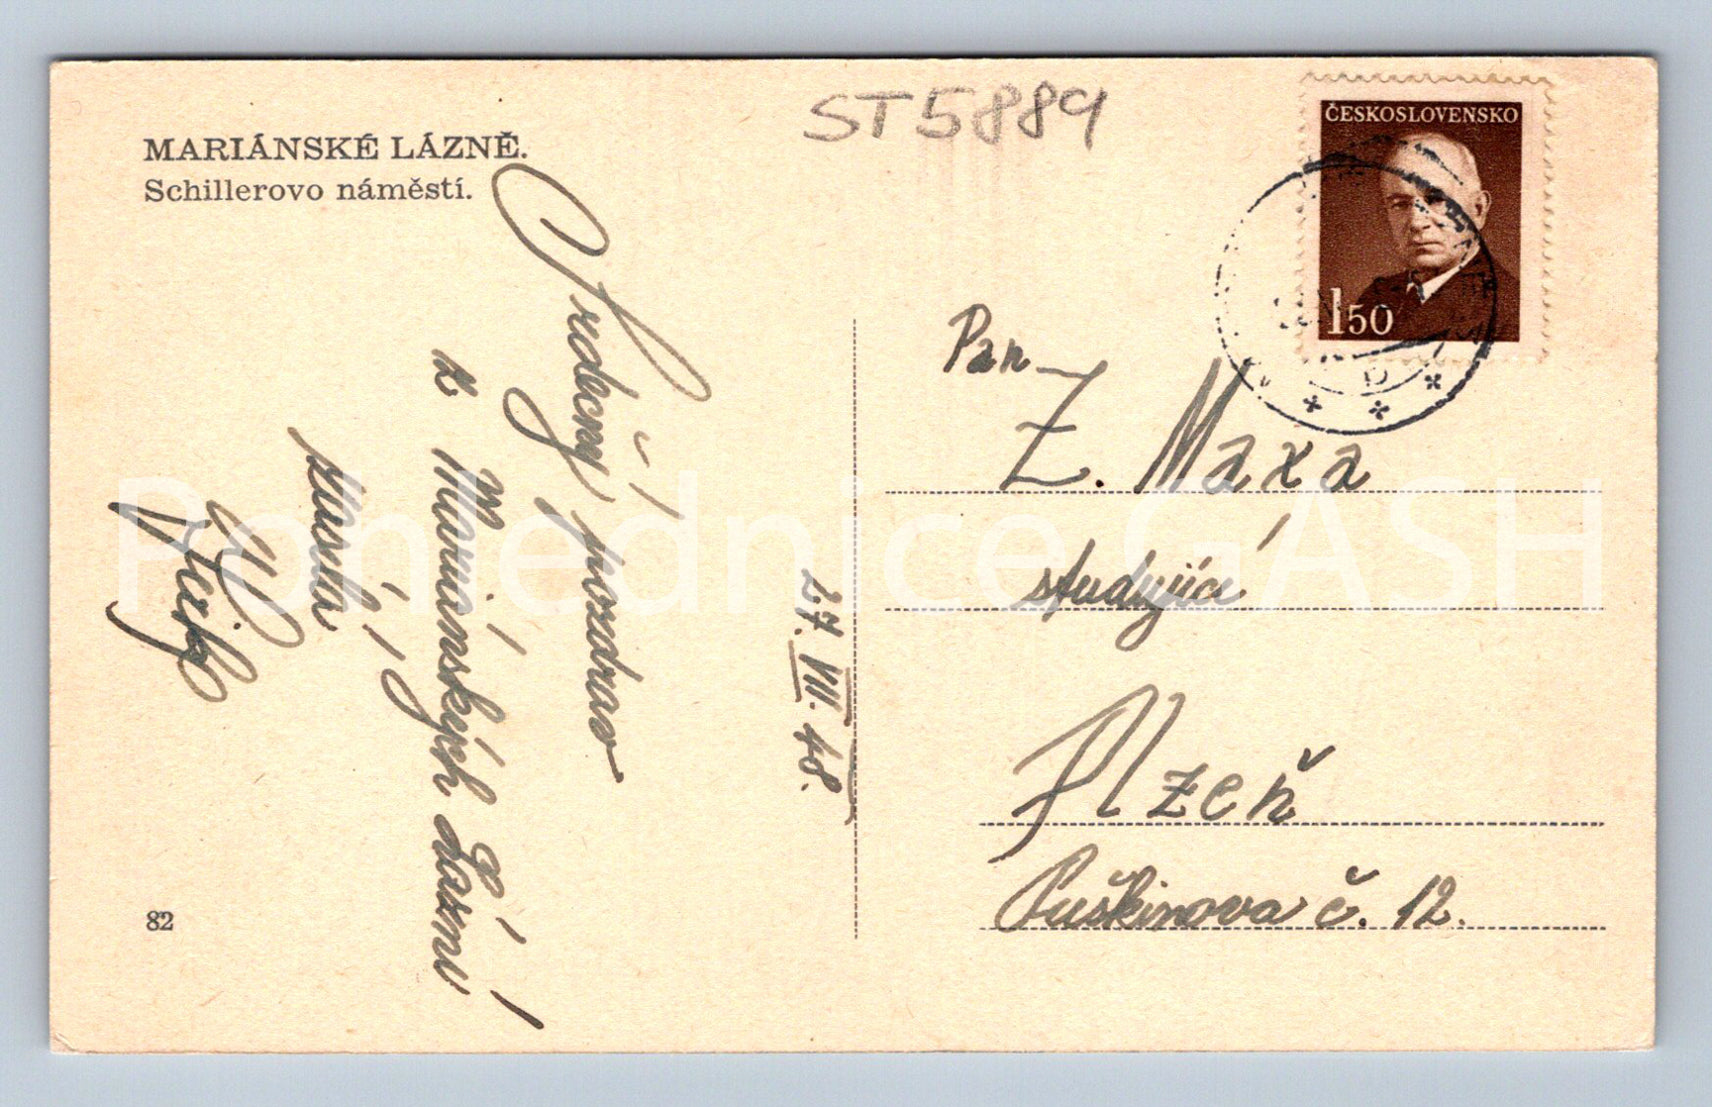 ST5889
MARIÁNSKÉ LÁZNĚ.
Schillerovo náměstí.
ČESKOSLOVENSKO
150
Srdečný pozdrav
z Mariánských Lázní
27. VIII. 48.
Pan
Z. Maxa
studující
Plzeň
Puškinova č. 12.
82
Pohlednice GASH